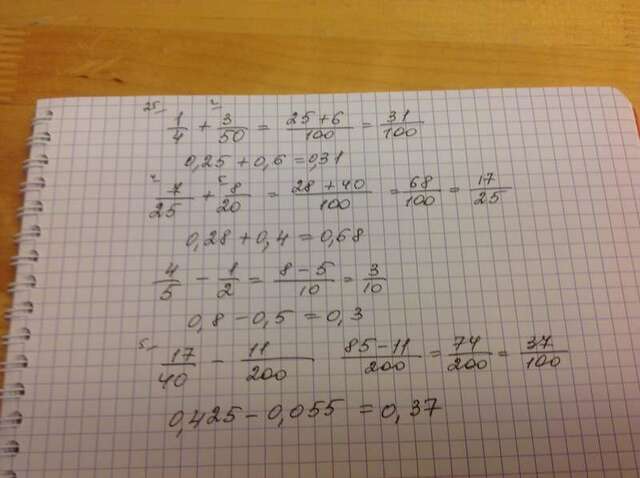 25 2
1/4 + 3/50 = 25+6/100 = 31/100
0,25 + 0,6 = 0,31
7/25 + 8/20 = 28+40/100 = 68/100 = 17/25
0,28 + 0,4 = 0,68
4/5 - 1/2 = 8-5/10 = 3/10
0,8 - 0,5 = 0,3
5 17/40 - 11/200 85-11/200 = 74/200 = 37/100
0,425 - 0,055 = 0,37